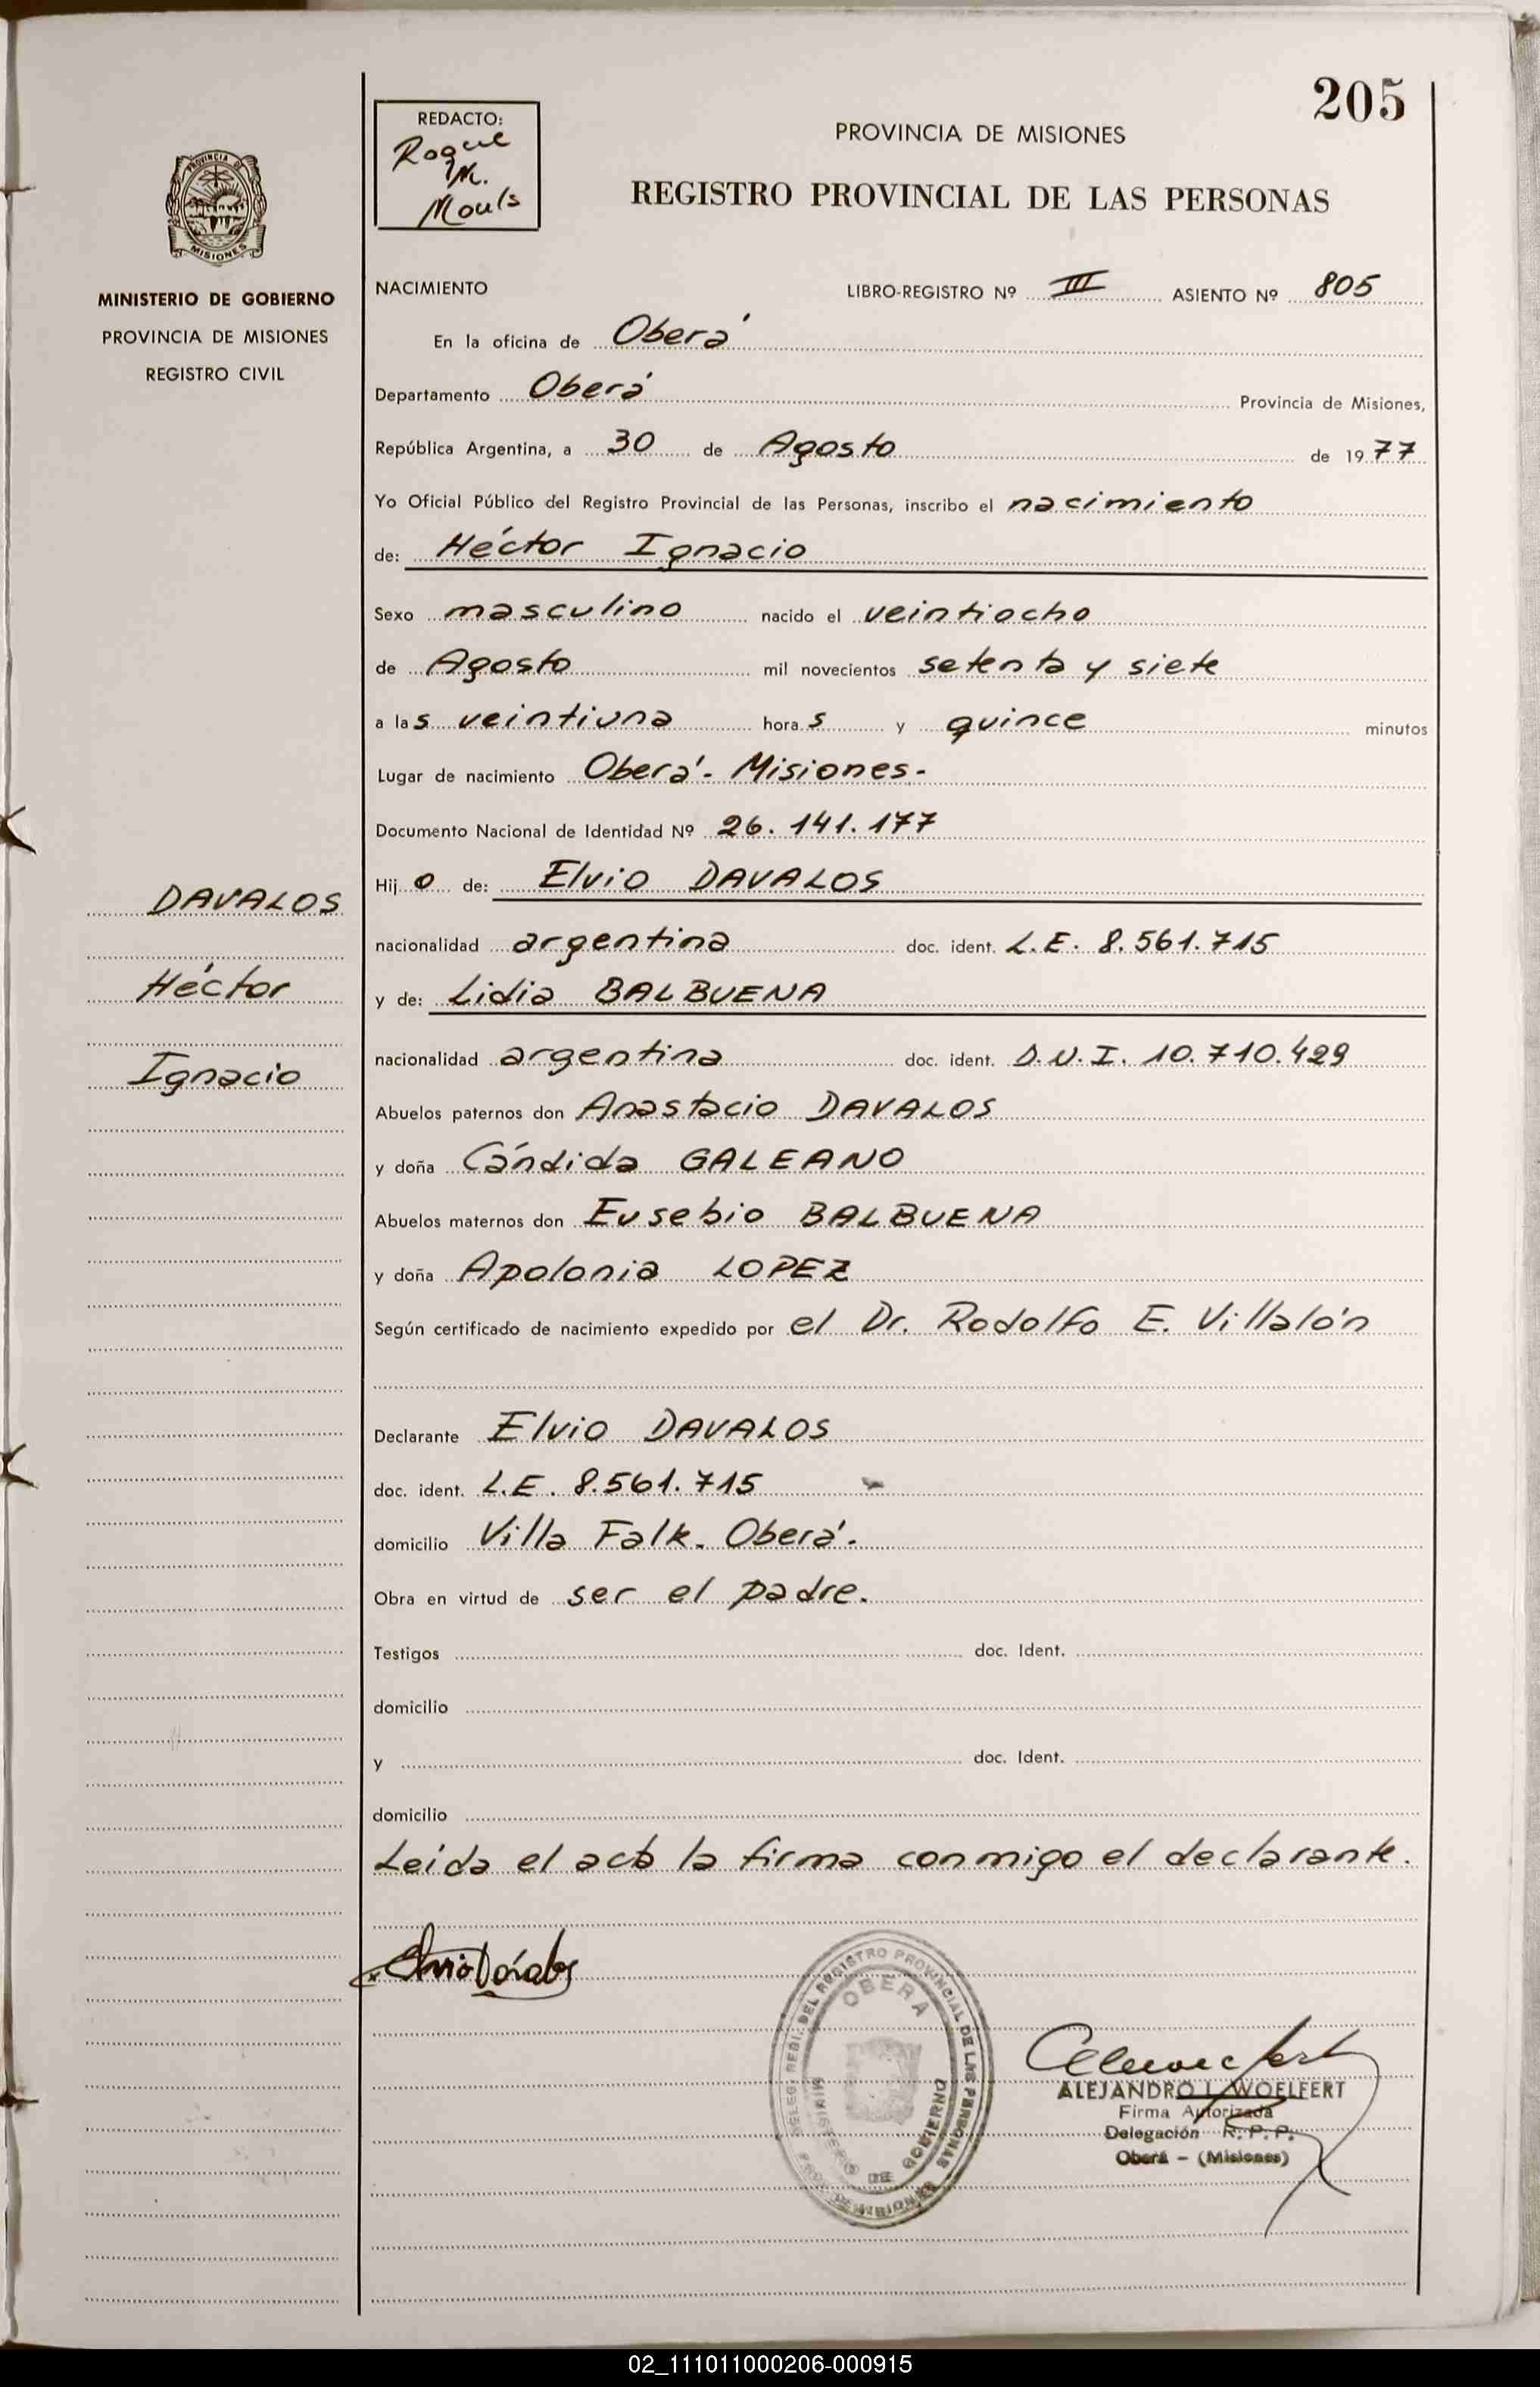 205
REDACTO:
Roque
M.
Mouls
PROVINCIA DE MISIONES
REGISTRO PROVINCIAL DE LAS PERSONAS
PROVINCIA DE
MISIONES
MINISTERIO DE GOBIERNO
PROVINCIA DE MISIONES
REGISTRO CIVIL
NACIMIENTO LIBRO-REGISTRO Nº III ASIENTO Nº 805
En la oficina de Oberá
Departamento Oberá Provincia de Misiones,
República Argentina, a 30 de Agosto de 1977
Yo Oficial Público del Registro Provincial de las Personas, inscribo el nacimiento
de: Héctor Ignacio
Sexo masculino nacido el veintiocho
de Agosto mil novecientos setenta y siete
a las veintiuna horas y quince minutos
Lugar de nacimiento Oberá - Misiones-
Documento Nacional de Identidad Nº 26.141.177
DAVALOS
Héctor
Ignacio
Hijo de: Elvio DAVALOS
nacionalidad argentina doc. ident. L.E. 8.561.715
y de: Lidia BALBUENA
nacionalidad argentina doc. ident. D.N.I. 10.710.429
Abuelos paternos don Anastacio DAVALOS
y doña Cándida GALEANO
Abuelos maternos don Eusebio BALBUENA
y doña Apolonia LOPEZ
Según certificado de nacimiento expedido por el Dr. Rodolfo E. Villalón
Declarante Elvio DAVALOS
doc. ident. L.E. 8.561.715
domicilio Villa Falk. Oberá.
Obra en virtud de ser el padre.
Testigos doc. Ident.
domicilio
y doc. Ident.
domicilio
Leída el acta la firma conmigo el declarante.
DEL REGISTRO PROVINCIAL DE LAS PERSONAS
OBERA
MINISTERIO DE GOBIERNO
ALEJANDRO L. WOELFERT
Firma Autorizada
Delegación R. P. P.
Oberá - (Misiones)
02_111011000206-000915